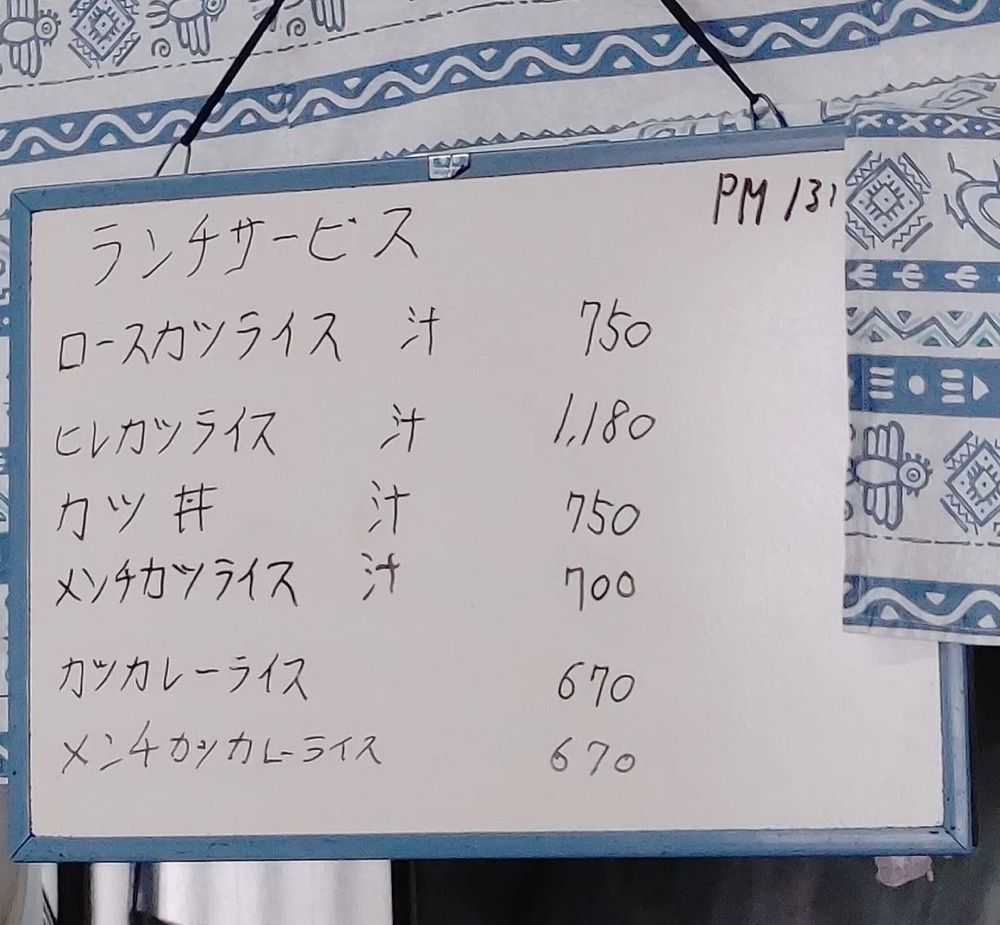 ランチサービス PM 13
ロースカツライス 汁 750
ヒレカツライス 汁 1,180
カツ丼 汁 750
メンチカツライス 汁 700
カツカレーライス 670
メンチカツカレーライス 670